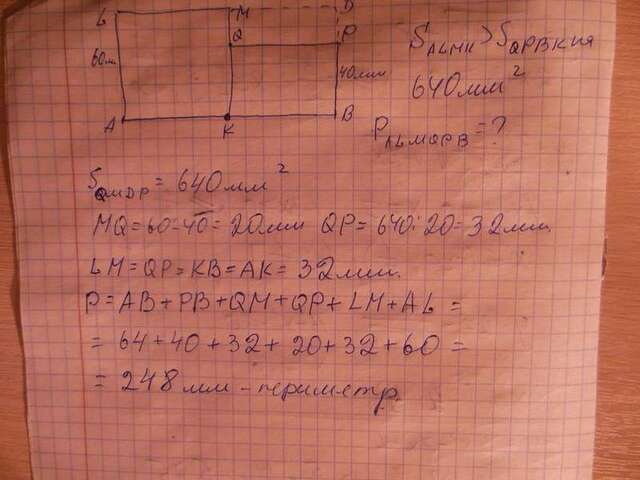 L M D
Q P
60мм
40мм
A K B
S ALMK > S QPBK на
640мм²
P ALMQPB = ?
S QMDP = 640мм²
MQ = 60-40 = 20мм QP = 640:20 = 32мм
LM = QP = KB = AK = 32мм.
P = AB + PB + QM + QP + LM + AL =
= 64 + 40 + 32 + 20 + 32 + 60 =
= 248мм - периметр.